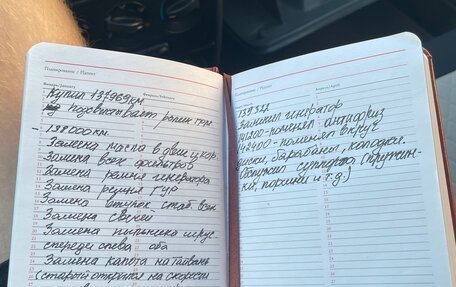 Планирование / Planner
Январь/January
Февраль/February
Купил 137969 км
подсвистывает ролик ГРМ
- 138000 км.
Замена масла в двиг и кор.
Замена всех фильтров
Замена ремня генератора
Замена ремня ГУР
Замена втулок стаб. всех
Замена свечей
Замена пыльника шрус
спереди слева оба
Замена капота на Тайвань
(старый открылся на скорости
Планирование / Planner
Апрель/April
139327
Заменил генератор
141200 - поменял антифриз
142400 - поменял вкруг
диски, барабаны, колодки.
Обслужил суппорта (пружин-
ки, поршни и т.д.)